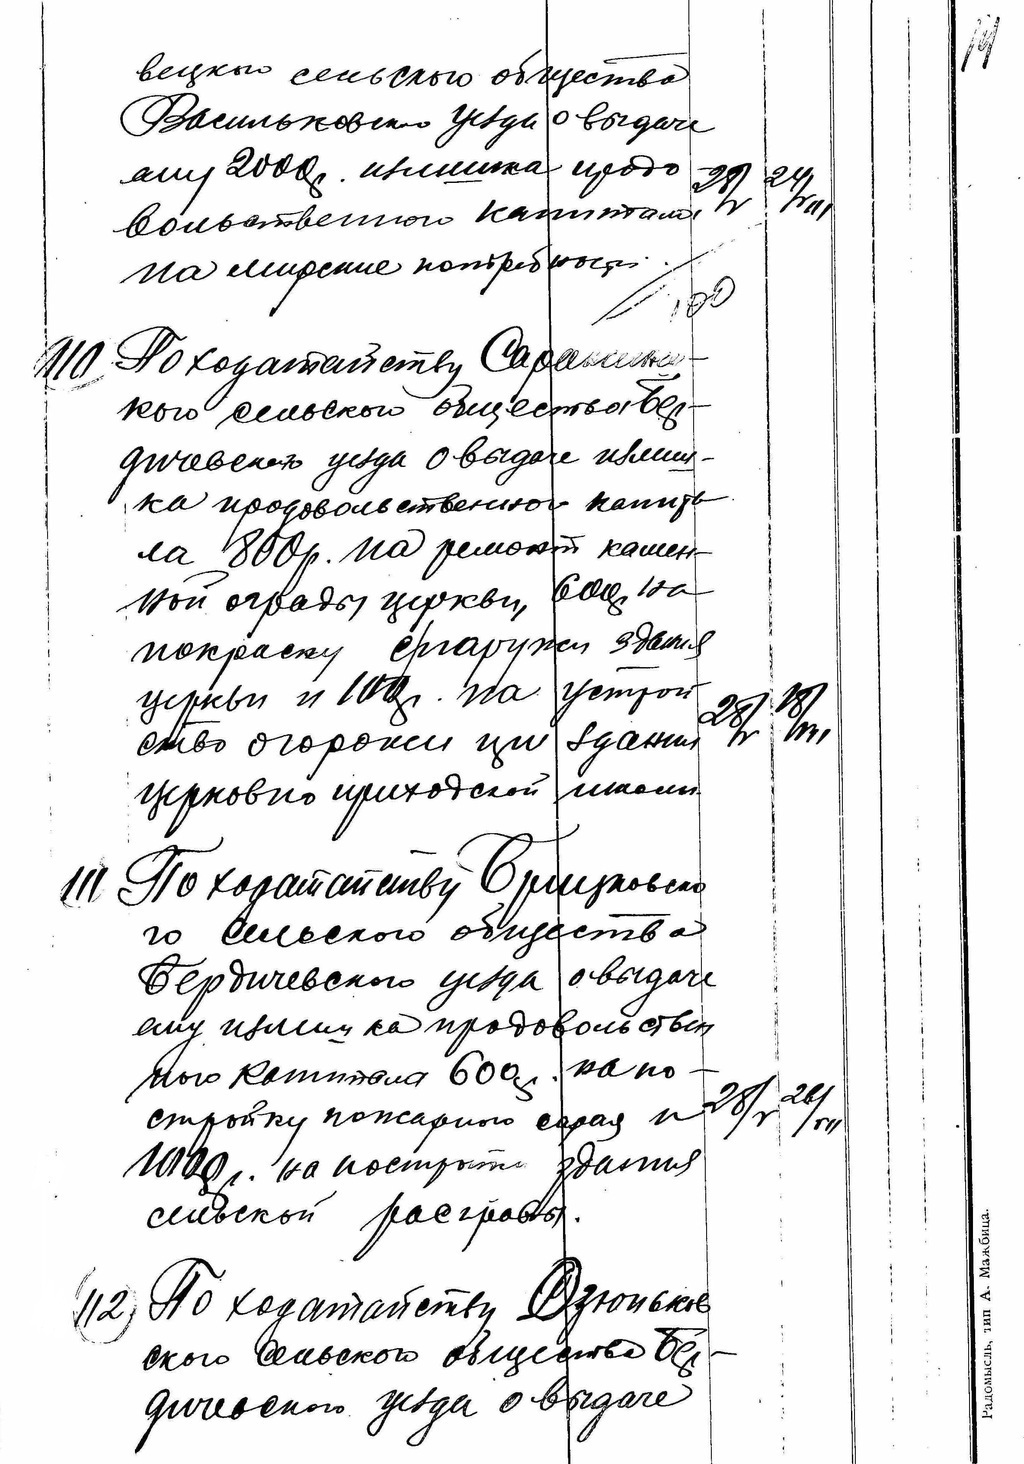 вецкого сельского общества
Васильковского уезда о выдаче
ему 2000 р. излишка продо
вольственного капитала
на мирские потребности.
28/V 24/VIII
100
110 По ходатайству
кого сельского общества Бер-
дичевского уезда о выдаче излиш-
ка продовольственного капита
ла 800 р. на ремонт камен-
ной ограды церкви, 600 р. на
покраску снаружи здания
церкви и 100 р. на устрой
ство огорожи при здании
церковно приходской школы
28/V 18/VIII
111 По ходатайству
го сельского общества
Бердичевского уезда о выдаче
ему излишка продовольствен
ного капитала 600 р. на по-
стройку пожарного сарая и
1000 р. на постройку здания
сельской расправы.
28/V 26/VIII
112 По ходатайству Дзюньков
ского сельского общества Бер-
дичевского уезда о выдаче
Радомысль, тип А. Мажбица.